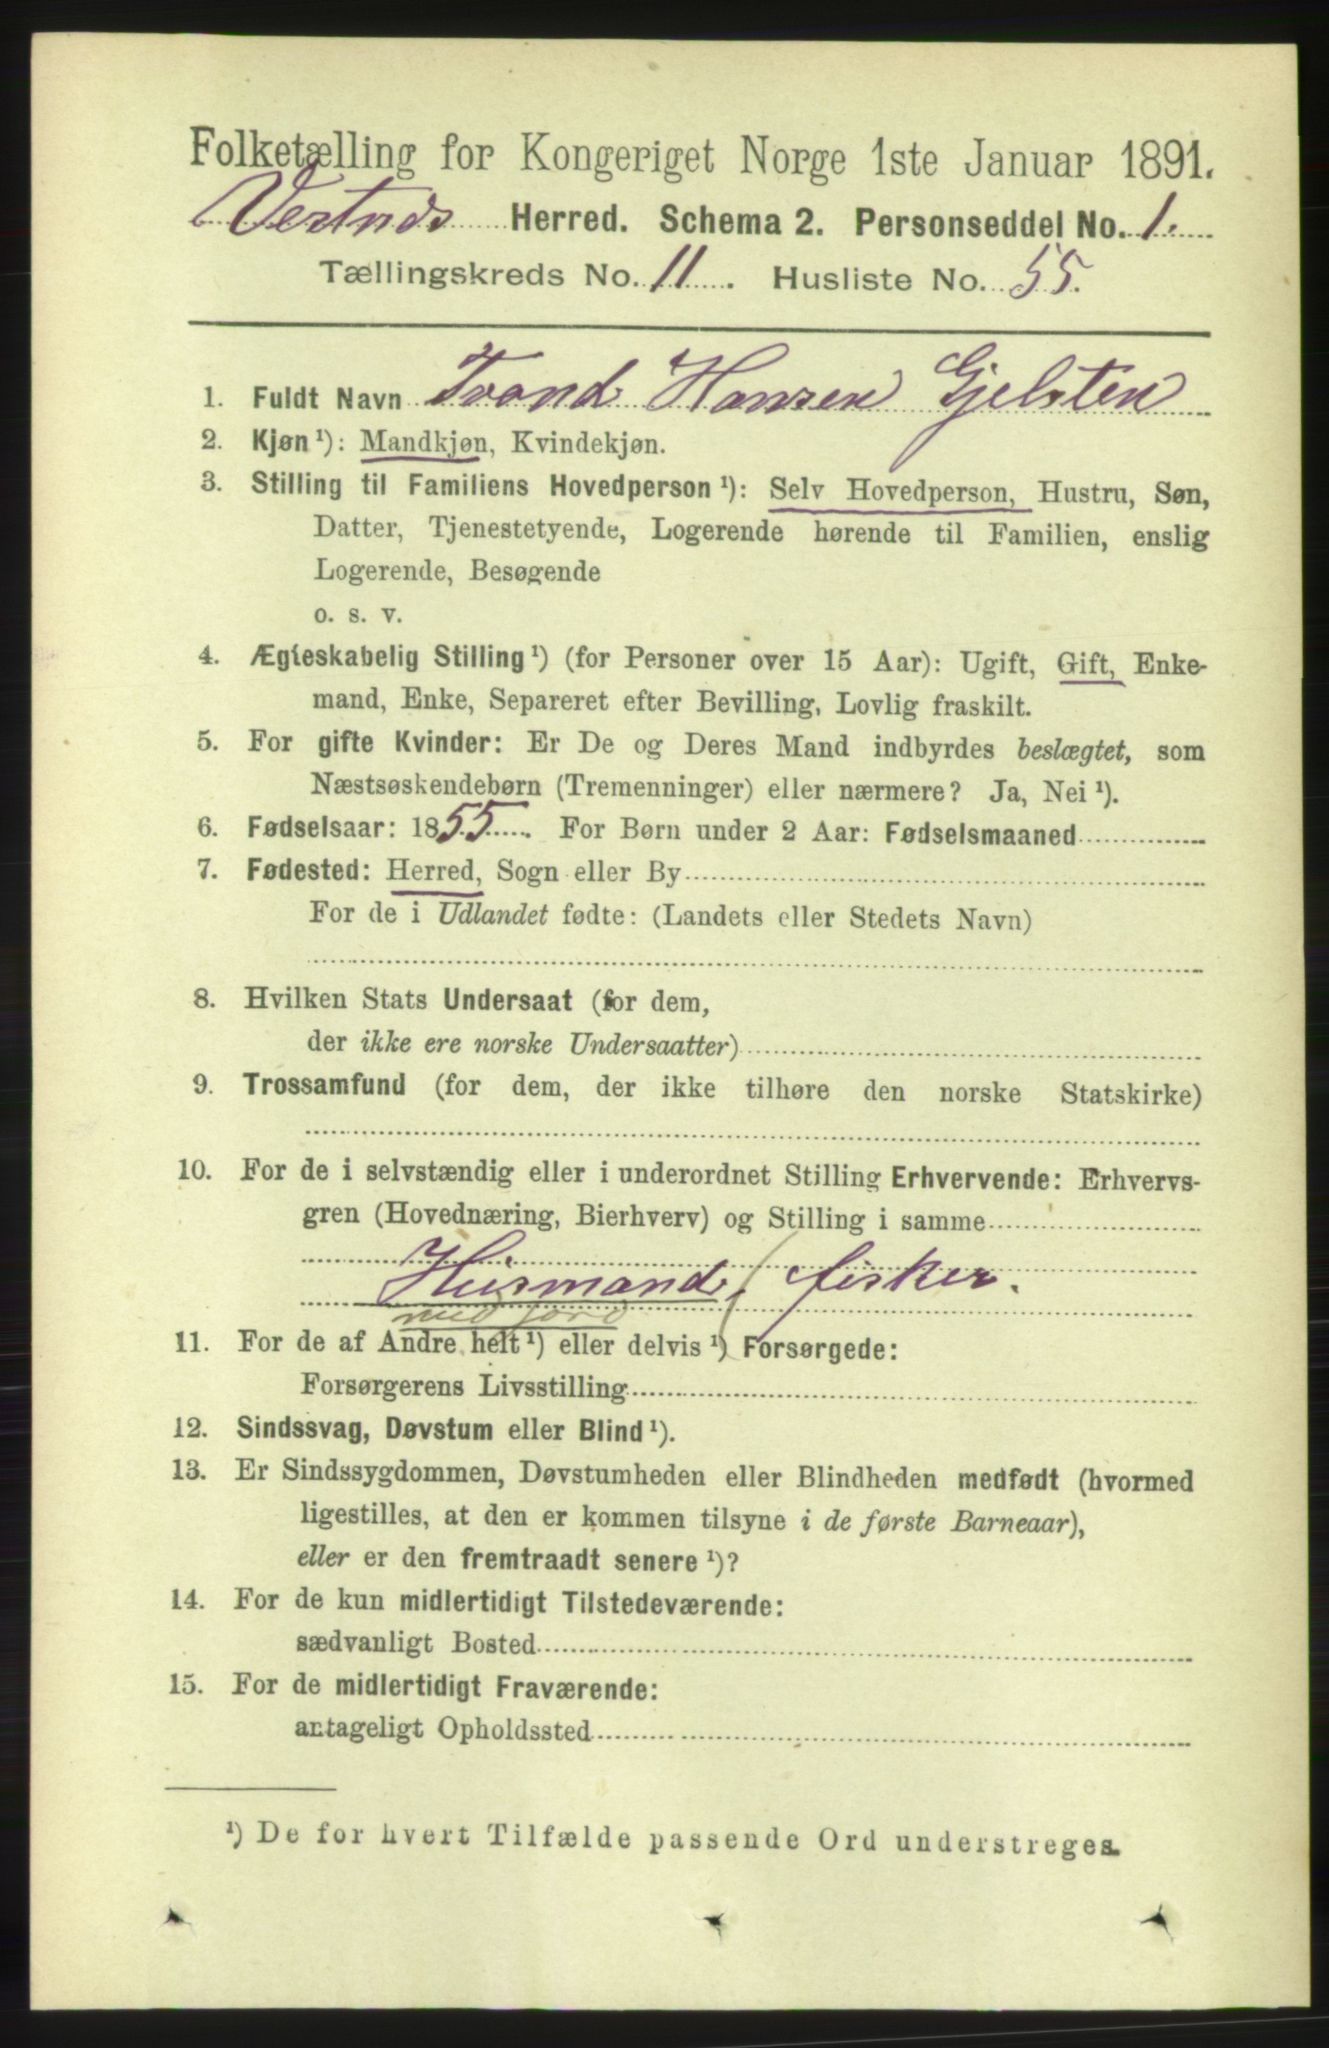 Folketælling for Kongeriget Norge 1ste Januar 1891.
Vestnes Herred. Schema 2. Personseddel No. 1.
Tællingskreds No. 11. Husliste No. 55.
1. Fuldt Navn Trond Hansen Gjelsten
2. Kjøn ¹): Mandkjøn, Kvindekjøn.
3. Stilling til Familiens Hovedperson ¹): Selv Hovedperson, Hustru, Søn,
Datter, Tjenestetyende, Logerende hørende til Familien, enslig
Logerende, Besøgende
o. s. v.
4. Ægteskabelig Stilling ¹) (for Personer over 15 Aar): Ugift, Gift, Enke-
mand, Enke, Separeret efter Bevilling, Lovlig fraskilt.
5. For gifte Kvinder: Er De og Deres Mand indbyrdes beslægtet, som
Næstsøskendebørn (Tremenninger) eller nærmere? Ja, Nei ¹).
6. Fødselsaar: 1855. For Børn under 2 Aar: Fødselsmaaned
7. Fødested: Herred, Sogn eller By
For de i Udlandet fødte: (Landets eller Stedets Navn)
8. Hvilken Stats Undersaat (for dem,
der ikke ere norske Undersaatter)
9. Trossamfund (for dem, der ikke tilhøre den norske Statskirke)
10. For de i selvstændig eller i underordnet Stilling Erhvervende: Erhvervs-
gren (Hovednæring, Bierhverv) og Stilling i samme
Husmand, fisker.
med jord
11. For de af Andre helt ¹) eller delvis ¹) Forsørgede:
Forsørgerens Livsstilling
12. Sindssvag, Døvstum eller Blind ¹).
13. Er Sindssygdommen, Døvstumheden eller Blindheden medfødt (hvormed
ligestilles, at den er kommen tilsyne i de første Barneaar),
eller er den fremtraadt senere ¹)?
14. For de kun midlertidigt Tilstedeværende:
sædvanligt Bosted
15. For de midlertidigt Fraværende:
antageligt Opholdssted
¹) De for hvert Tilfælde passende Ord understreges.